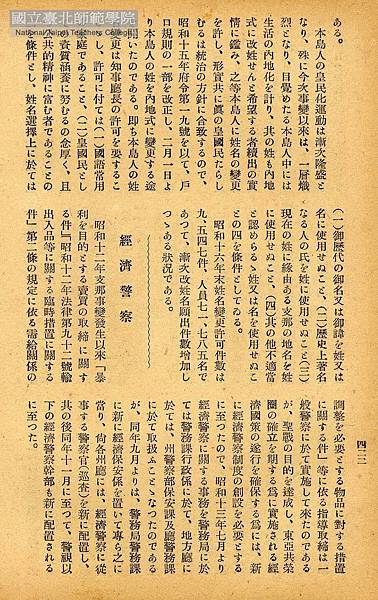 國立臺北師範學院
National Taipei Teachers College
ある。
本島人の皇民化運動は漸次隆盛と
なり、殊に今次事變以來は、一層熾
烈となり、目覺めたる本島人中には
生活の內地化を計り、其の姓も內地
式に改姓せんと希望する者續出の實
情に鑑み、之等本島人に姓名の變更
を許し、形實共に眞の皇國民たらし
むるは統治の方針に合致するので、
昭和十五年府令第一九號を以て、戶
口規則の一部を改正し、二月一日よ
り本島人の姓を內地式に變更する途
開いたのである。卽ち本島人の姓
更は知事廳長の許可を要するこ
し、許可に付ては(一)國語常用
庭であること、(二)皇國民とし
資質涵養に努むるの念厚く、且
共的精神に富む者であることの
條件とし、姓名選擇上に於ては
(一)御歷代の御名又は御諱を姓又は
名に使用せぬこと、(二)歷史上著名
なる人の氏を姓に使用せぬこと(三)
現在の姓に緣由ある支那の地名を姓
に使用せぬこと、(四)其の他不適當
と認めらるゝ姓又は名を使用せぬこ
との四を條件としてゐる。
昭和十六年末姓名變更許可件數は
九、五四七件、人員七一、七八五名で
あつて、漸次改姓名願出件數增加し
つゝある狀況である。
經濟警察
昭和十二年支那事變發生以來「暴
利を目的とする賣買の取締に關す
る件」「昭和十二年法律第九十二號輸
出入品等に關する臨時措置に關する
件」第二條の規定に依る需給關係の
調整を必要とする物品に對する措置
に關する件」等に依る指導取締は一
般警察に於て實施して來たのである
が、聖戰の目的を達成し、東亞共榮
圈の確立を期する爲に實施される經
濟國策の遂行を確保する爲には、新
に經濟警察制度の創設を必要とする
に至つたので、昭和十三年七月より
經濟警察に關する事務を警務局に於
ては警務課行政係に於て、地方廳に
於ては、州警察部保安課及廳警務課
に於て取扱ふことゝなつたのである
が、同年九月よりは、警務局警務課
に新に經濟保安係を置いて專ら之に
當り、尙各州廳には、經濟警察に從
事する警察官(巡査)を新に配置し、
其の後同年十一月に至つて、警視以
下の經濟警察幹部も新に配置される
に至つた。
四二二